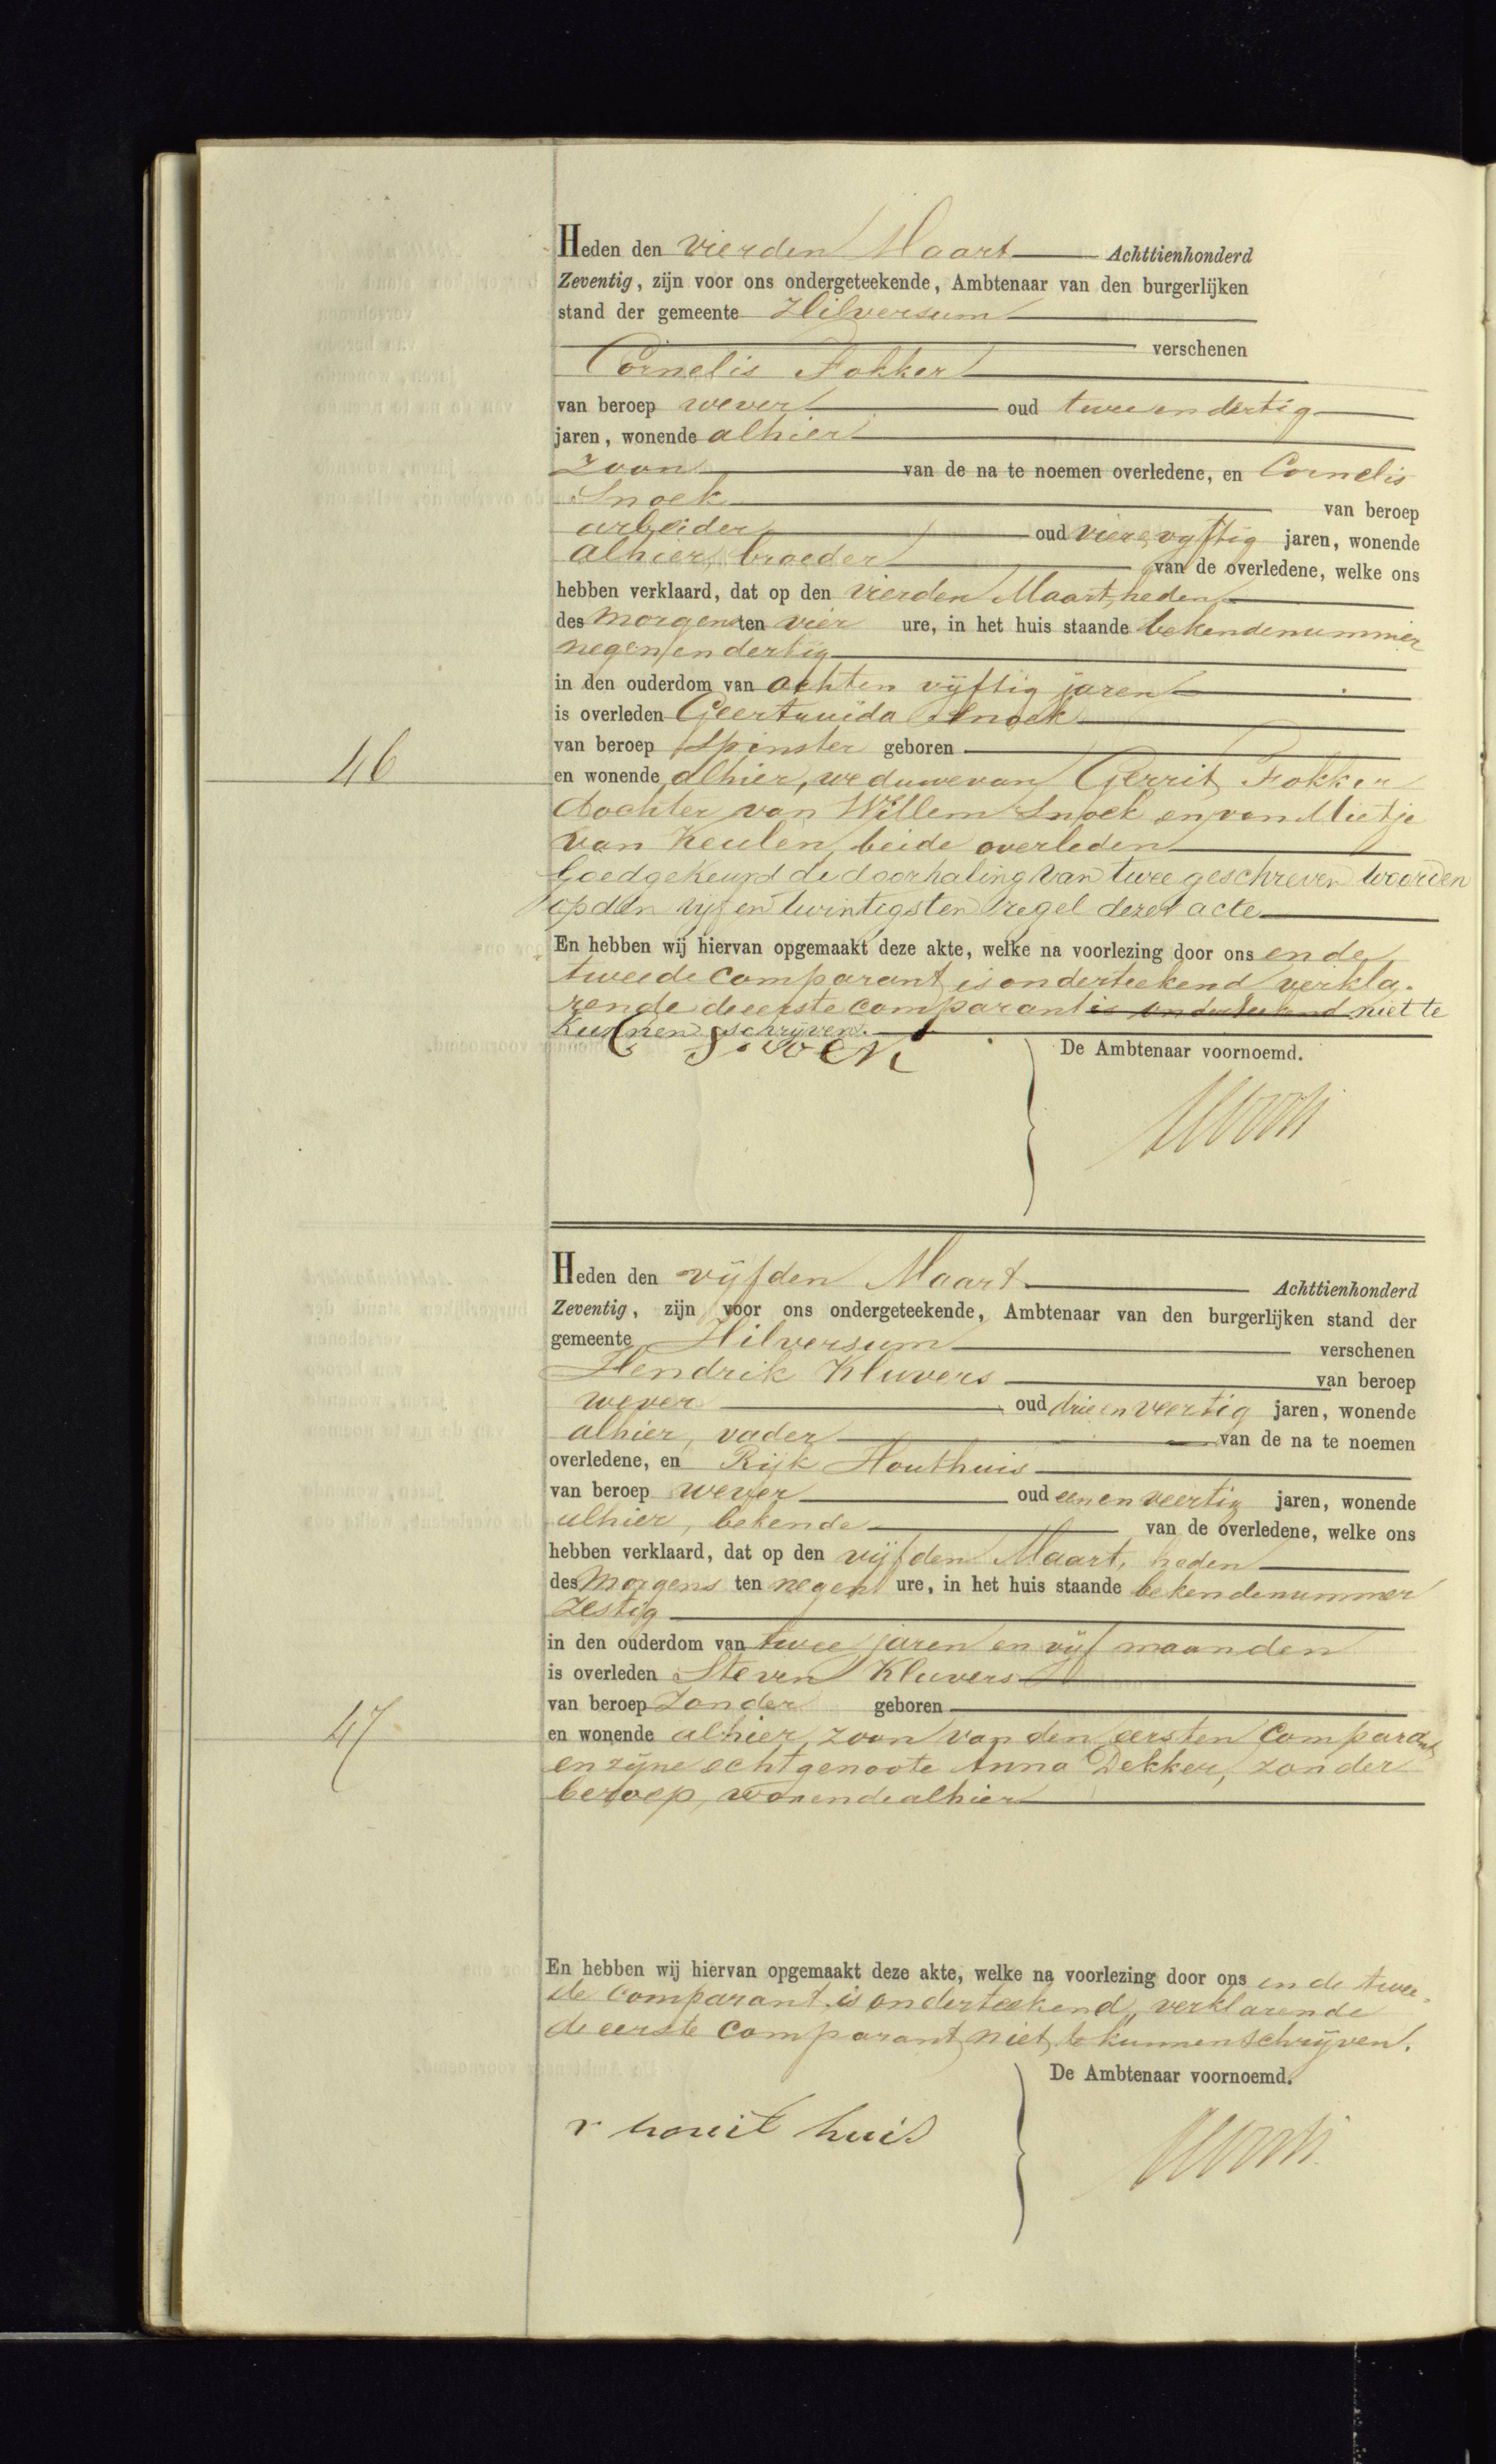 Heden den vierden Maart Achttienhonderd
Zeventig, zijn voor ons ondergeteekende, Ambtenaar van den burgerlijken
stand der gemeente Hilversum
verschenen
Cornelis Fokker
van beroep wever oud twee en dertig
jaren, wonende alhier
zoon van de na te noemen overledene, en Cornelis
Snoek van beroep
arbeider oud vierenvyftig jaren, wonende
alhier, broeder van de overledene, welke ons
hebben verklaard, dat op den vierden Maart, heden
des morgens ten vier ure, in het huis staande bekendenummer
negen en dertig
in den ouderdom van achten vijftig jaren
is overleden Geertruida Snoek
van beroep Spinster geboren
en wonende alhier, weduwe van Gerrit Fokker
46
dochter van Willem Snoek en van Mietje
van Keulen, beide overleden
Goedgekeurd de doorhaling van twee geschreven woorden
op den vyf en twintigsten regel dezer acte
En hebben wij hiervan opgemaakt deze akte, welke na voorlezing door ons en de
tweede comparant is onderteekend verkla-
rende de eerste comparant is onderteekend niet te
kunnen schrijven.
C Snoek
De Ambtenaar voornoemd.
Heden den vijfden Maart Achttienhonderd
Zeventig, zijn voor ons ondergeteekende, Ambtenaar van den burgerlijken stand der
gemeente Hilversum verschenen
Hendrik Kluvers van beroep
wever oud drie en veertig jaren, wonende
alhier, vader van de na te noemen
overledene, en Rijk Houthuis
van beroep wever oud een en veertig jaren, wonende
alhier, bekende van de overledene, welke ons
hebben verklaard, dat op den vijfden Maart, heden
des morgens ten negen ure, in het huis staande bekendenummer
zestig
in den ouderdom van twee jaren en vijf maanden
is overleden Steven Kluvers
van beroep Zonder geboren
en wonende alhier, zoon van den eersten Comparant
47
en zijne echtgenoote Anna Dekker, zonder
beroep, wonende alhier
En hebben wij hiervan opgemaakt deze akte, welke na voorlezing door ons en de twee-
de comparant is onderteekend, verklarende
de eerste comparant niet te kunnen schrijven.
De Ambtenaar voornoemd.
r houit huis